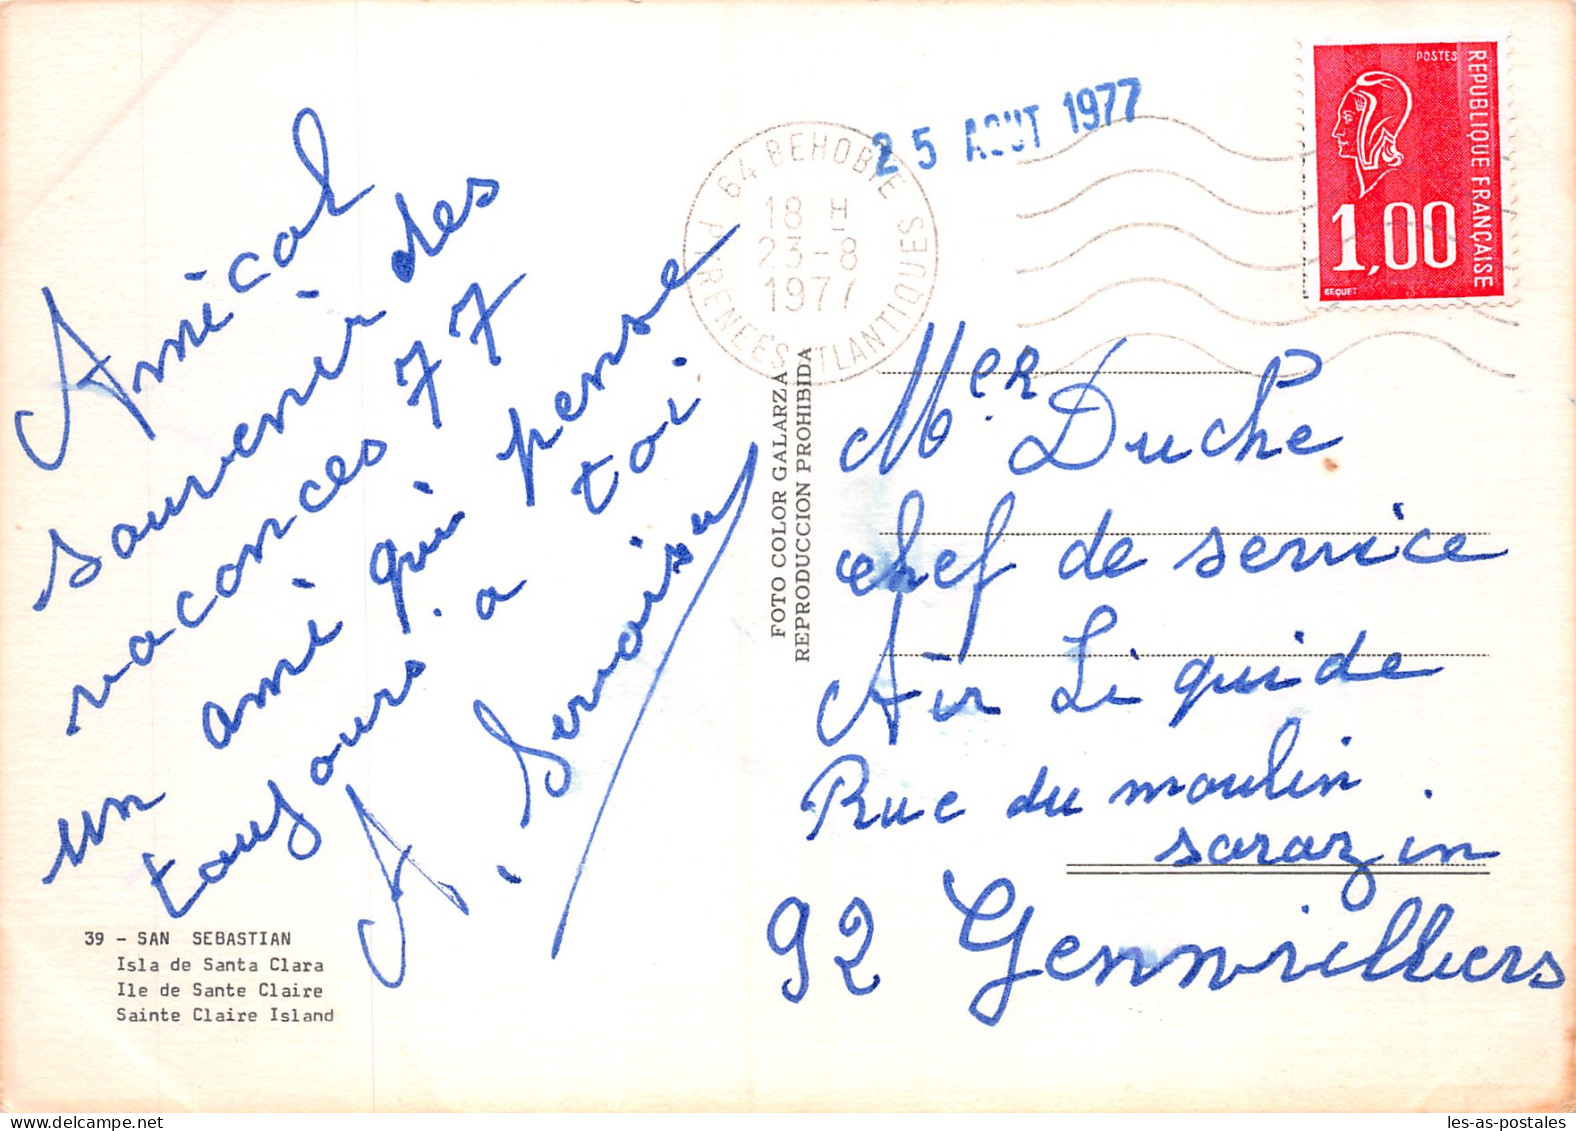 Amical
souvenir des
vaconces 77
un ami qui pense
toujours a toi
A. Servaisu
39 - SAN SEBASTIAN
Isla de Santa Clara
Ile de Sante Claire
Sainte Claire Island
FOTO COLOR GALARZA
REPRODUCCION PROHIBIDA
64 BEHOBIE
18 H
23-8
1977
PYRENEES ATLANTIQUES
25 AOUT 1977
POSTES
REPUBLIQUE FRANÇAISE
1,00
BEQUET
Mer Duche
chef de service
Air Liquide
Rue du moulin
sarazin
92 Gennvilliers
les-as-postales